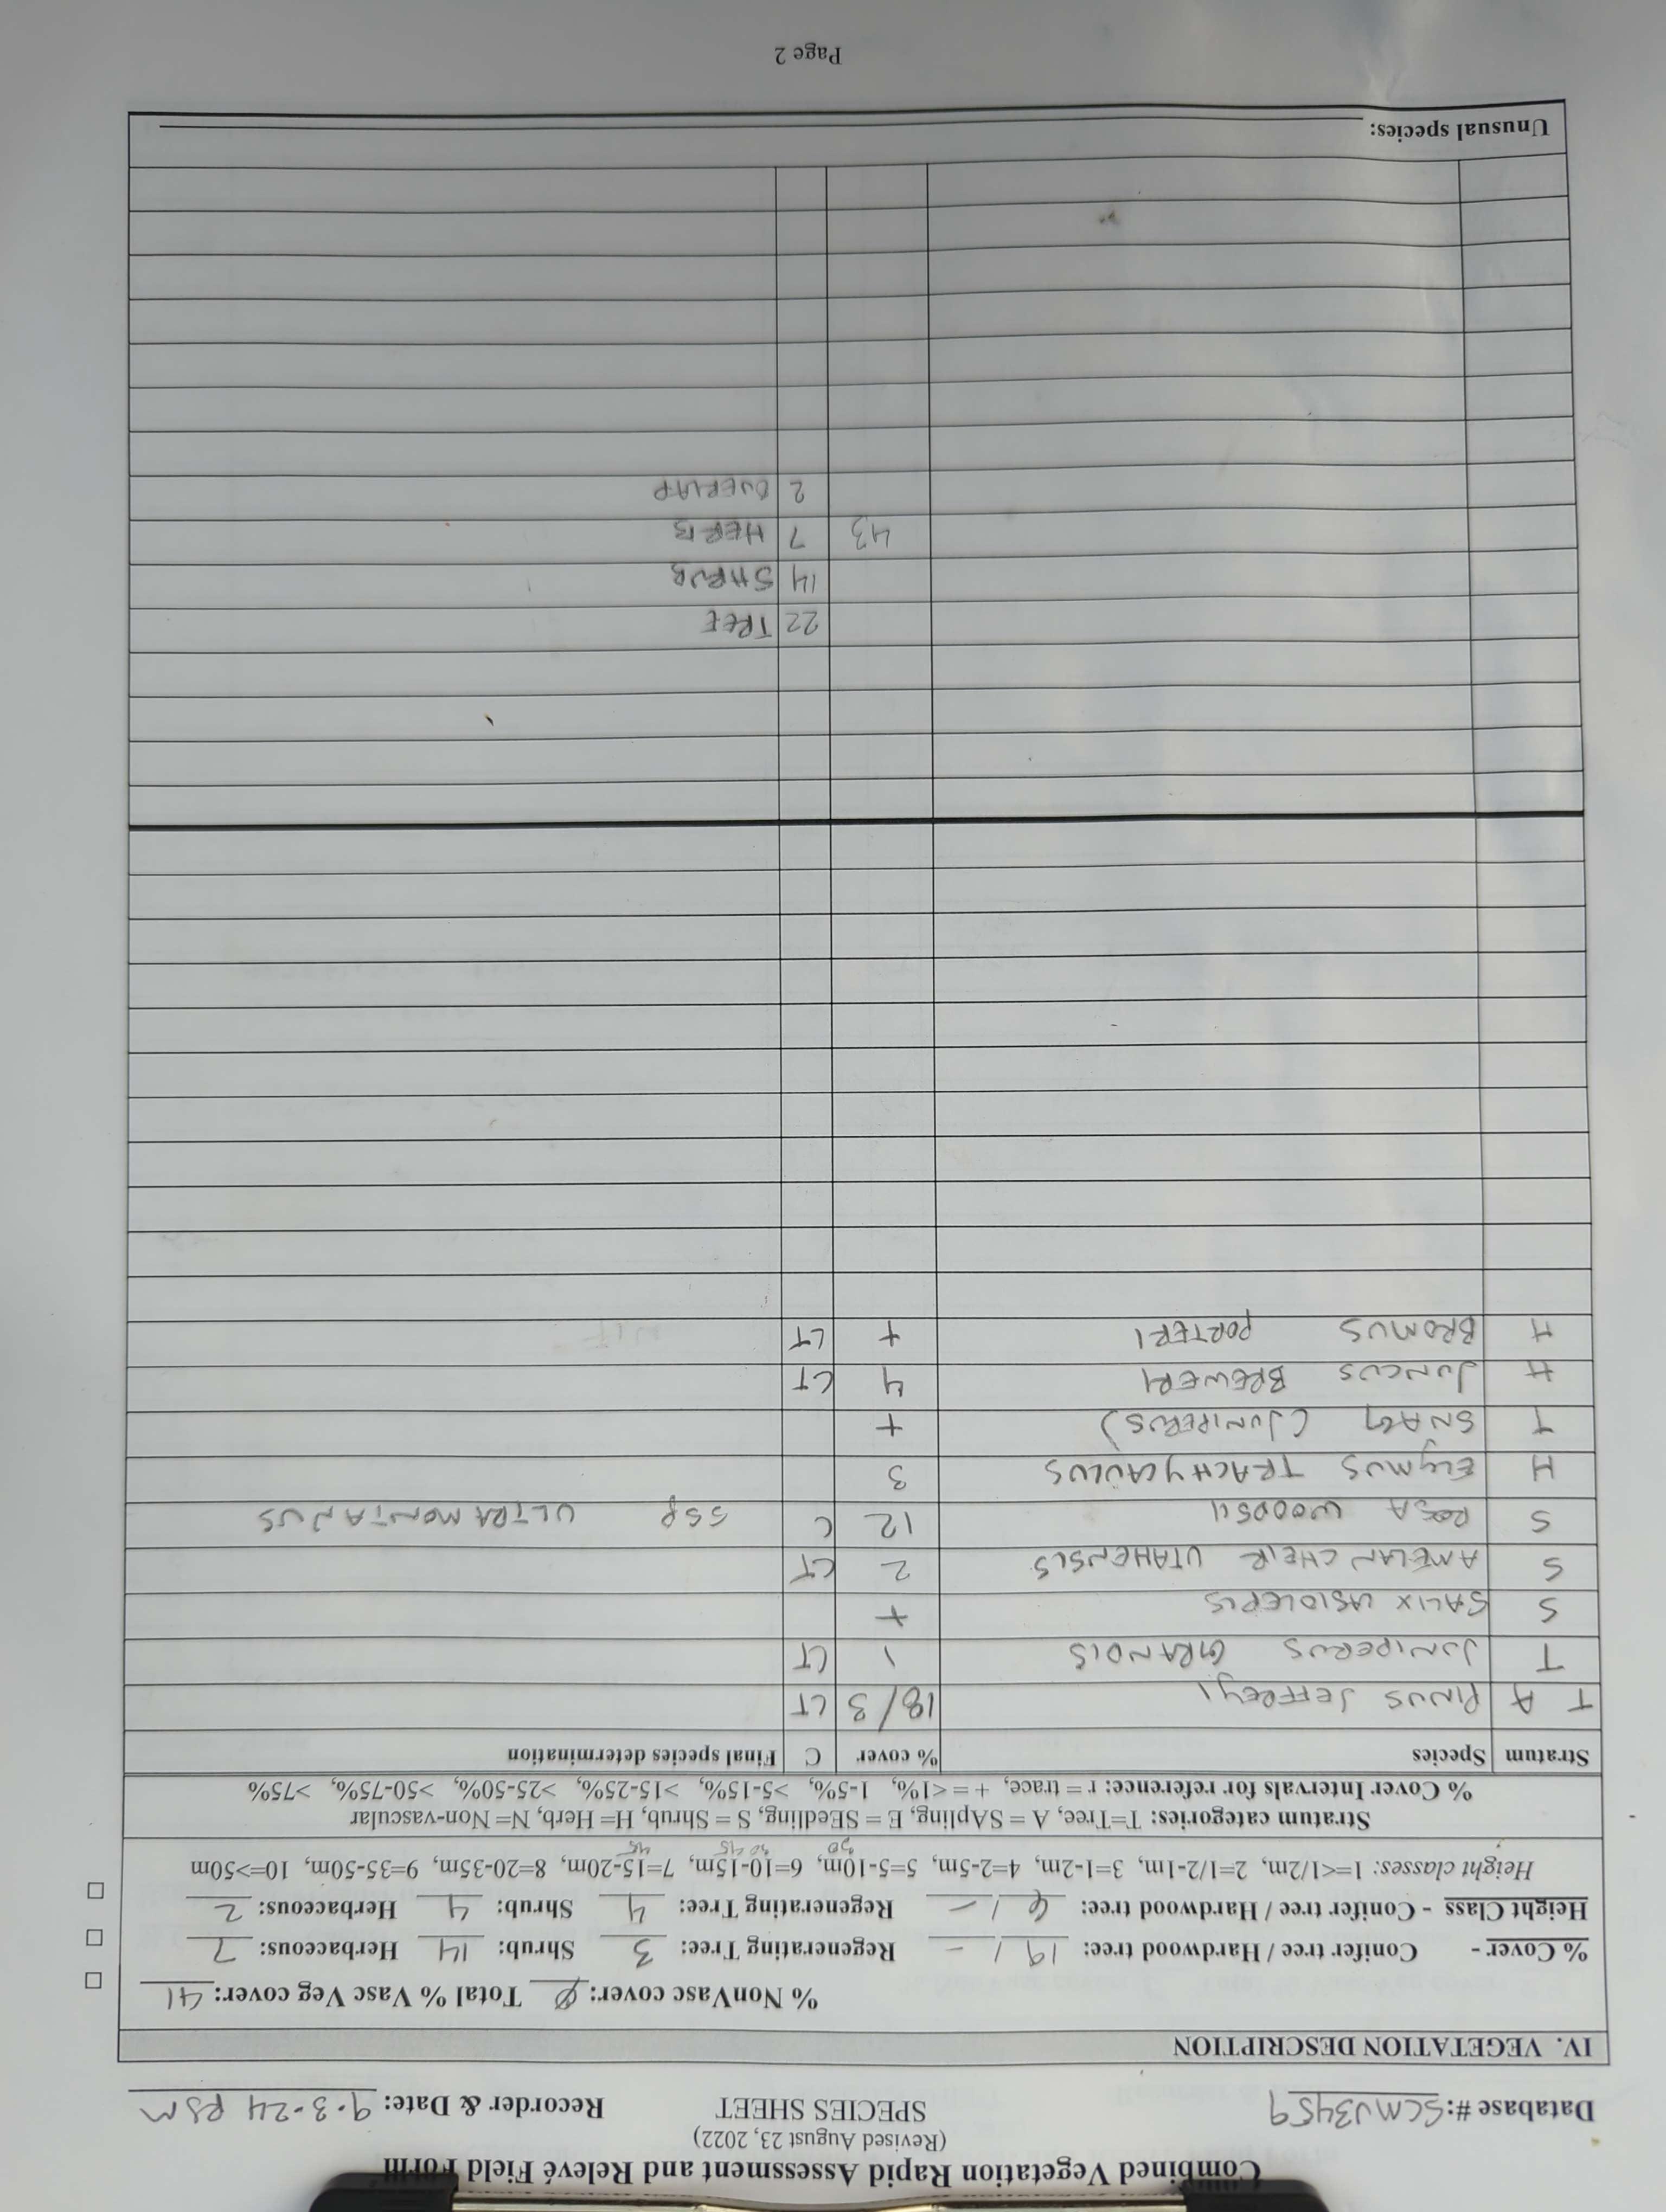 Combined Vegetation Rapid Assessment and Relevé Field Form
(Revised August 23, 2022)
Database #: SCMU3459 SPECIES SHEET Recorder & Date: 9.3.24 RSM
IV. VEGETATION DESCRIPTION
% NonVasc cover: Ø Total % Vasc Veg cover: 41 □
% Cover - Conifer tree / Hardwood tree: 19 / - Regenerating Tree: 3 Shrub: 14 Herbaceous: 7 □
Height Class - Conifer tree / Hardwood tree: 6 / - Regenerating Tree: 4 Shrub: 4 Herbaceous: 2 □
Height classes: 1=<1/2m, 2=1/2-1m, 3=1-2m, 4=2-5m, 5=5-10m, 6=10-15m, 7=15-20m, 8=20-35m, 9=35-50m, 10=>50m
30 30 45 45
Stratum categories: T=Tree, A = SApling, E = SEedling, S = Shrub, H= Herb, N= Non-vascular
% Cover Intervals for reference: r = trace, + = <1%, 1-5%, >5-15%, >15-25%, >25-50%, >50-75%, >75%
Stratum Species % cover C Final species determination
T A PINUS JEFFREYI 18/3 CT
T JUNIPERUS GRANDIS 1 CT
S SALIX LASIOLEPIS +
S AMELANCHEIR UTAHENSIS 2 CT
S ROSA WOODSII 12 C SSP ULTRAMONTANUS
H ELYMUS TRACHYCAULUS 3
T SNAG (JUNIPERUS) +
H JUNCUS BREWERI 4 CT
H BROMUS PORTERI + CT
22 TREE
14 SHRUB
43 7 HERB
2 OVERLAP
Unusual species:
Page 2